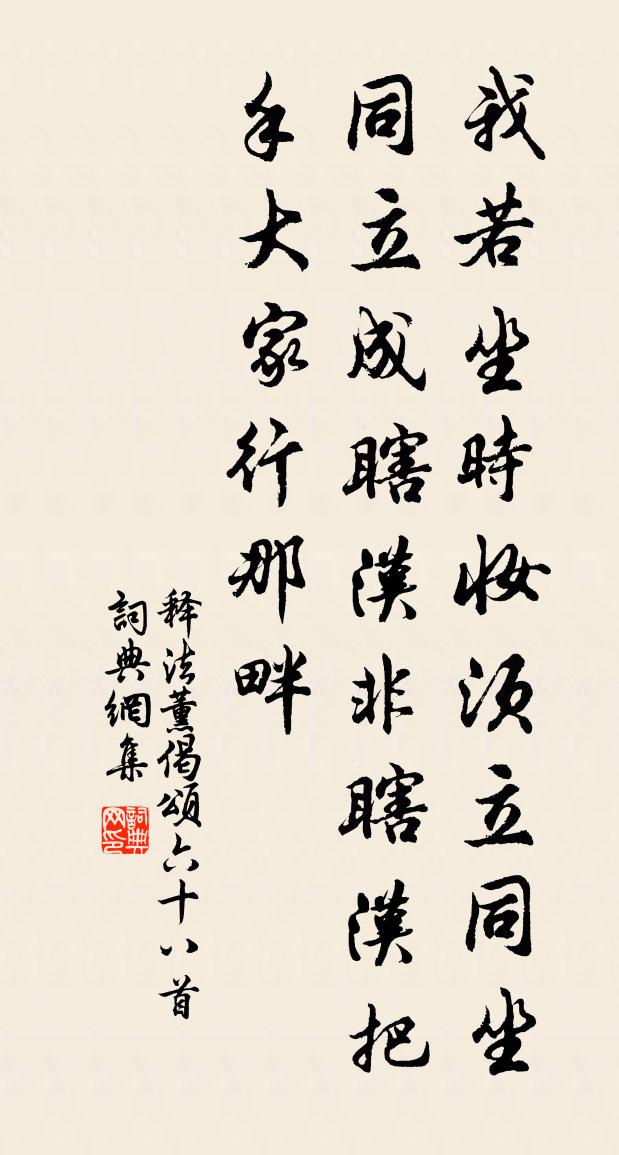 我若坐時妝須立同坐
同立成瞎漢非瞎漢把
手大家行那畔
释法薰偈頌六十八首
詞典網集
詞典网印